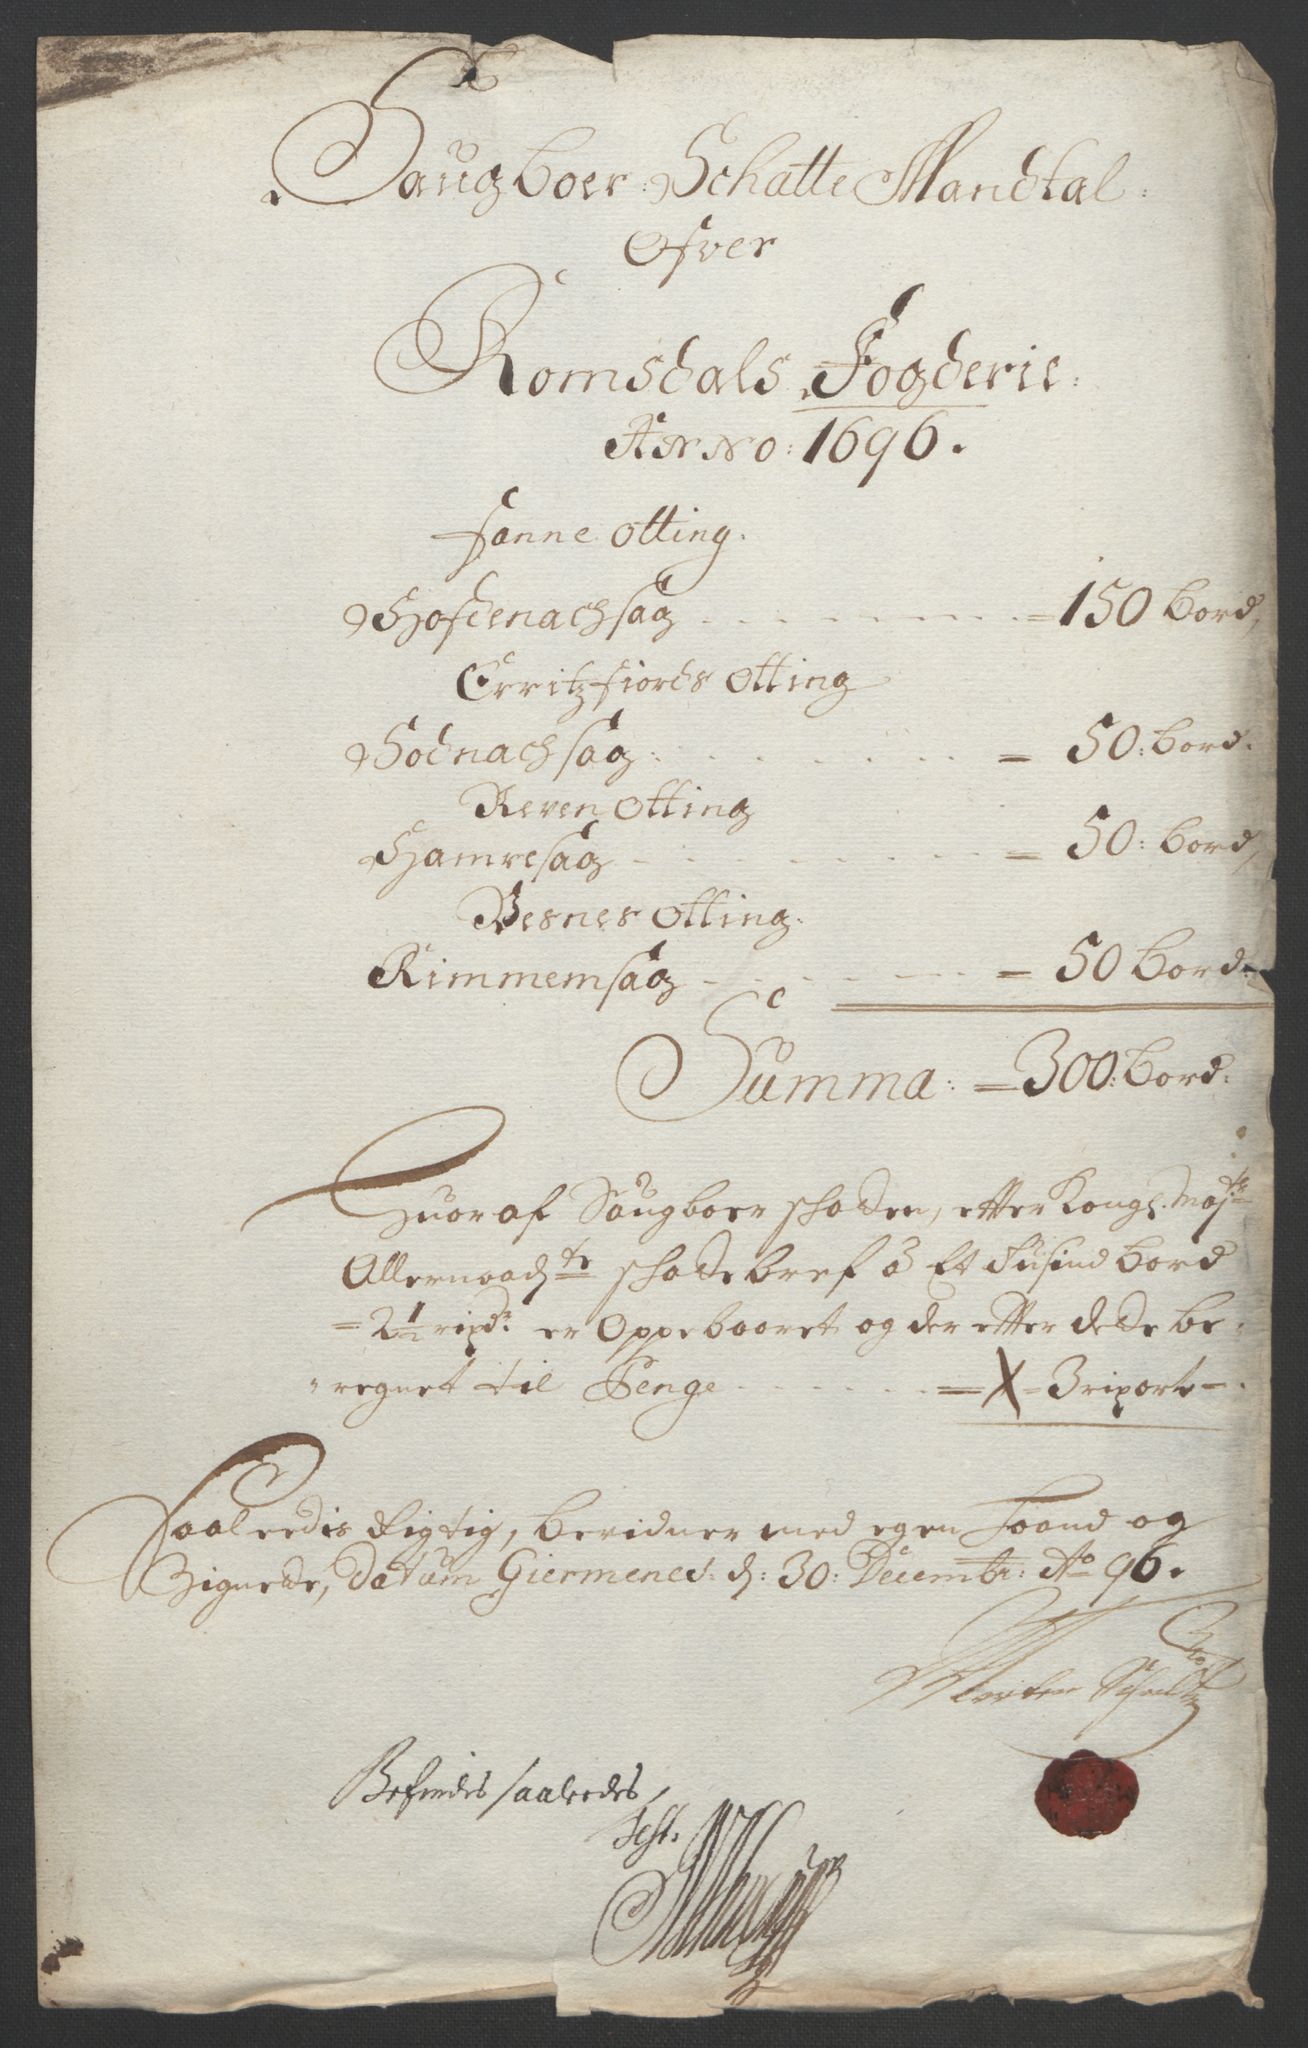 Saugboer: Schatte Mandtal:
Ofver
Romsdals Fogderie:
Anno: 1696.
Fanne Otting.
Hofdenachsag = 150 bord,
Erritzfiords Otting
Sodnachsag: = 50: bord.
Reven Otting
Hamresag = 50: bord,
Vesnes Otting:
Rimmemsag = 50 bord:
Summa: = 300: bord:
Huoraf Saugboer schatten, etter Kongl. Mayts
Allernaadte schatebref á Et Tusind bord
= 2½ rixdr er Oppebaaret og der etter dette be-
regnet til Penge = X = 3 riporte
Saaleedis Rigtig, bevidner med egen Haand og
Zignete, Datum Giermenes: d: 30: Decembr: Ao 96.
Morten Schultz
Befindes saaleedes,
Test.